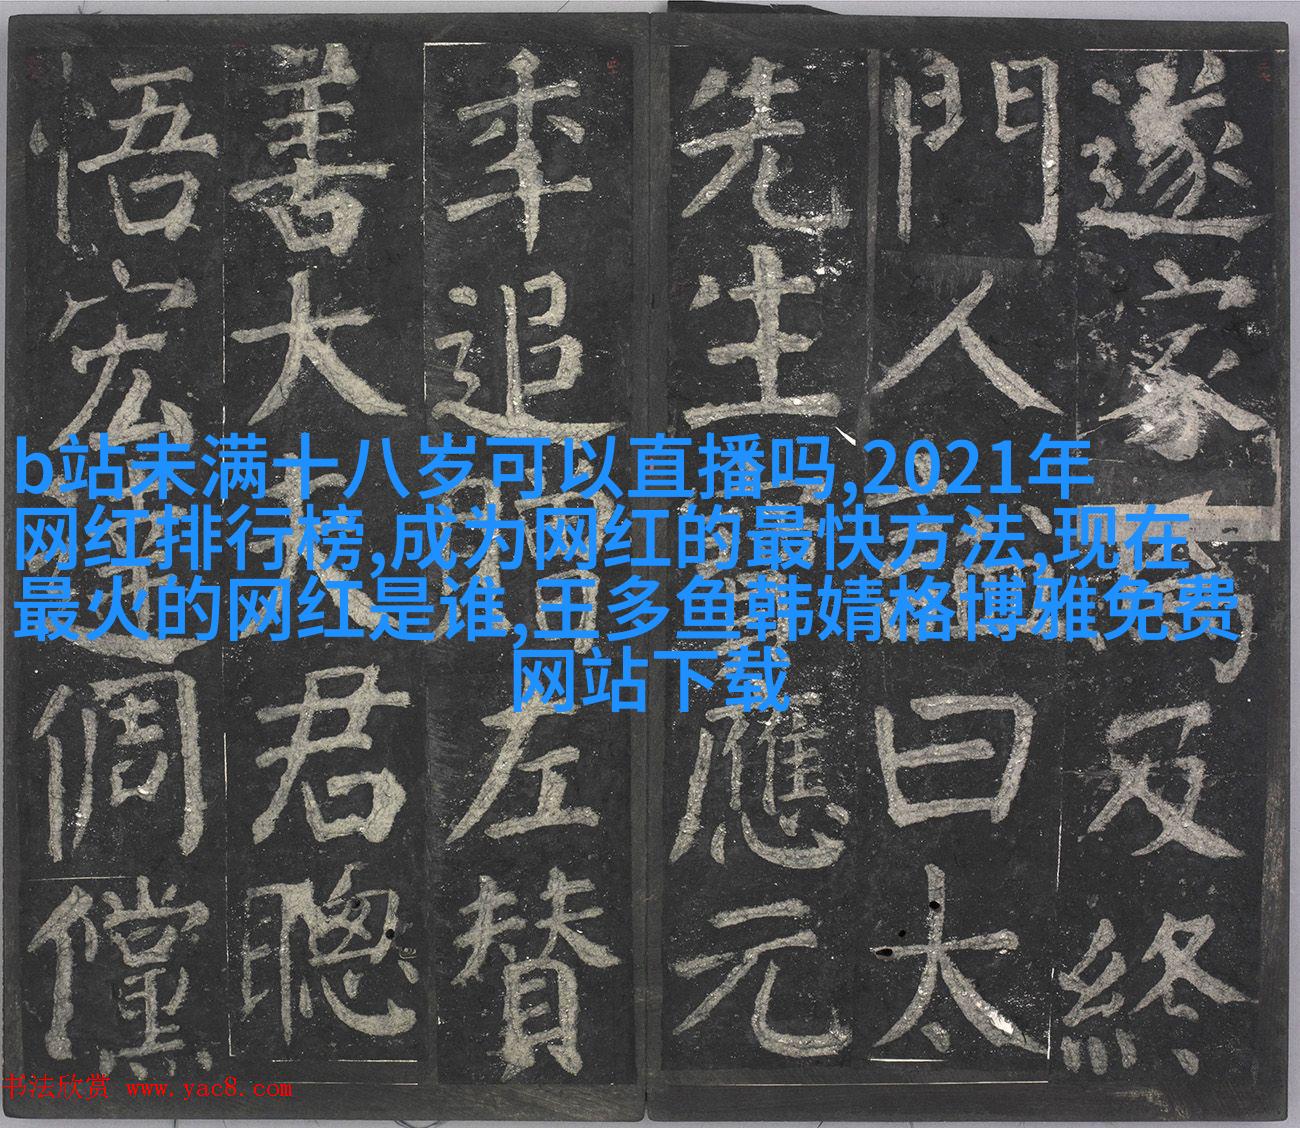 遂家焉及終
門人曰太
先生應元
年追贈左贊
善大夫君聰
悟宏邁倜儻
b站未满十八岁可以直播吗,2021年
网红排行榜,成为网红的最快方法,现在
最火的网红是谁,王多鱼韩婧格博雅免费
网站下载
书法欣赏 www.yac8.com